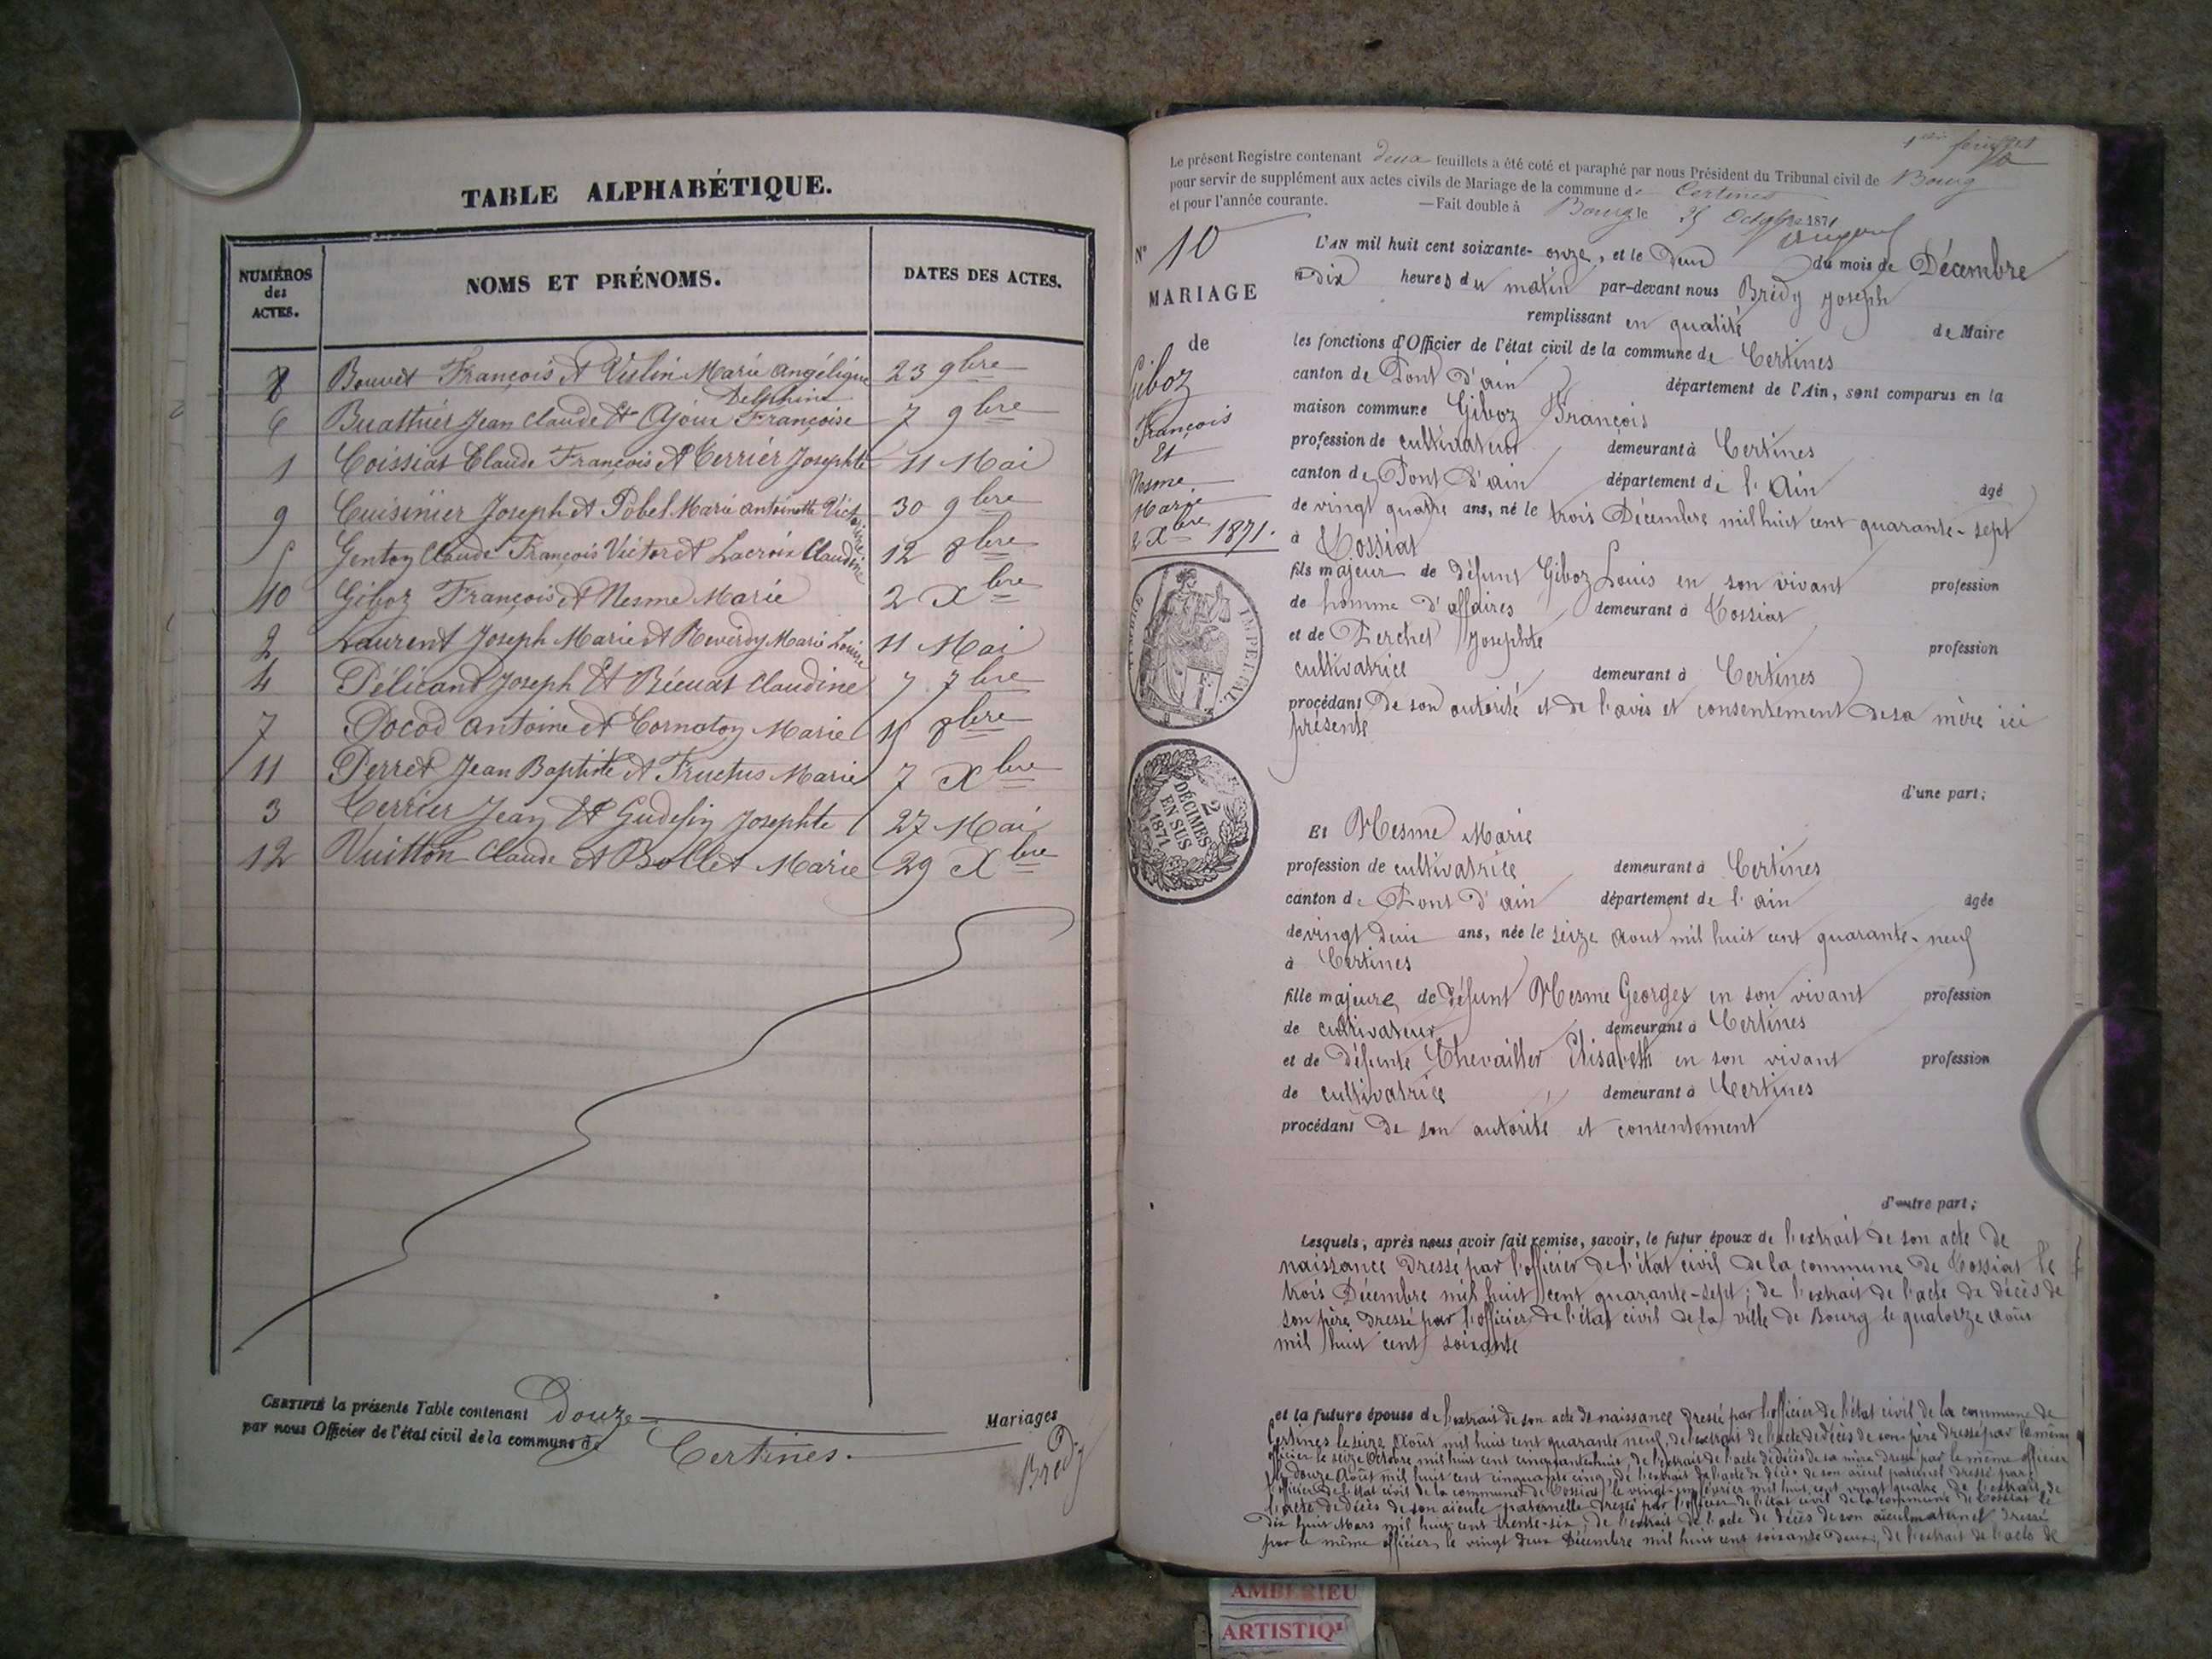 TABLE ALPHABÉTIQUE.
NUMÉROS des ACTES.
NOMS ET PRÉNOMS.
DATES DES ACTES.
8 Bouvet François et Marie Angélique Delphine 23 9bre
6 Buathier Jean Claude et Françoise 7 9bre
1 Coissiat Claude François et Terrier Josephte 11 Mai
9 Cuisinier Joseph et Pobel Marie Antoinette Victorine 30 9bre
5 Genton Claude François Victor et Lacroix Claudine 12 8bre
10 Giboz François et Nesme Marie 2 Xbre
2 Laurent Joseph Marie et Reverdy Marie Louise 11 Mai
4 Pélicand Joseph et Claudine 7 7bre
7 Antoine et Cornaton Marie 8bre
11 Perret Jean Baptiste et Fructus Marie 7 Xbre
3 Terrier Jean et Josephte 27 Mai
12 Vuitton Claude et Bollet Marie 29 Xbre
CERTIFIÉ la présente Table contenant Douze Mariages
par nous Officier de l'état civil de la commune de Certines.
Bredy
Le présent Registre contenant deux feuillets a été coté et paraphé par nous Président du Tribunal civil de Bourg
pour servir de supplément aux actes civils de Mariage de la commune de Certines
et pour l'année courante. — Fait double à Bourg le Octobre 1871
N° 10
MARIAGE
de
Giboz
François
Et
Nesme
Marie
2 Xbre 1871.
TIMBRE IMPÉRIAL.
2 DÉCIMES EN SUS 1871
L'AN mil huit cent soixante-onze, et le Deux du mois de Décembre
à Dix heures du matin par-devant nous Brédy Joseph
remplissant en qualité de Maire
les fonctions d'Officier de l'état civil de la commune de Certines
canton de Pont d'ain département de l'Ain, sont comparus en la
maison commune Giboz François
profession de cultivateur demeurant à Certines
canton de Pont d'ain département de l'Ain âgé
de vingt quatre ans, né le trois Décembre mil huit cent quarante-sept
à Tossiat
fils majeur de défunt Giboz Louis en son vivant profession
de homme d'affaires demeurant à Tossiat
et de Perchet Josephte profession
cultivatrice demeurant à Certines
procédant de son autorité et de l'avis et consentement de sa mère ici
présente
d'une part;
Et Nesme Marie
profession de cultivatrice demeurant à Certines
canton de Pont d'ain département de l'ain âgée
de vingt deux ans, née le seize Aout mil huit cent quarante-neuf
à Certines
fille majeure de défunt Nesme Georges en son vivant profession
de cultivateur demeurant à Certines
et de défunte Chevailler Elisabeth en son vivant profession
de cultivatrice demeurant à Certines
procédant de son autorité et consentement
d'autre part;
Lesquels, après nous avoir fait remise, savoir, le futur époux de l'extrait de son acte de
naissance dressé par l'officier de l'état civil de la commune de Tossiat le
trois Décembre mil huit cent quarante-sept; de l'extrait de l'acte de décès de
son père dressé par l'officier de l'état civil de la ville de Bourg le quatorze Août
mil huit cent soixante
et la future épouse de l'extrait de son acte de naissance dressé par l'officier de l'état civil de la commune de
Certines le seize Août mil huit cent quarante neuf, de l'extrait de l'acte de décès de son père dressé par le même
officier le seize Octobre mil huit cent cinquante huit, de l'extrait de l'acte de décès de sa mère dressé par le même officier
le douze Août mil huit cent cinquante cinq, de l'extrait de l'acte de décès de son aïeul paternel dressé par
l'officier de l'état civil de la commune de Tossiat le vingt-un février mil huit cent vingt quatre, de l'extrait de
l'acte de décès de son aïeule paternelle dressé par l'officier de l'état civil de la commune de Tossiat le
dix huit Mars mil huit cent trente-six; de l'extrait de l'acte de décès de son aïeul maternel dressé
par le même officier, le vingt deux Décembre mil huit cent soixante deux; de l'extrait de l'acte de
AMBERIEU
ARTISTIQ